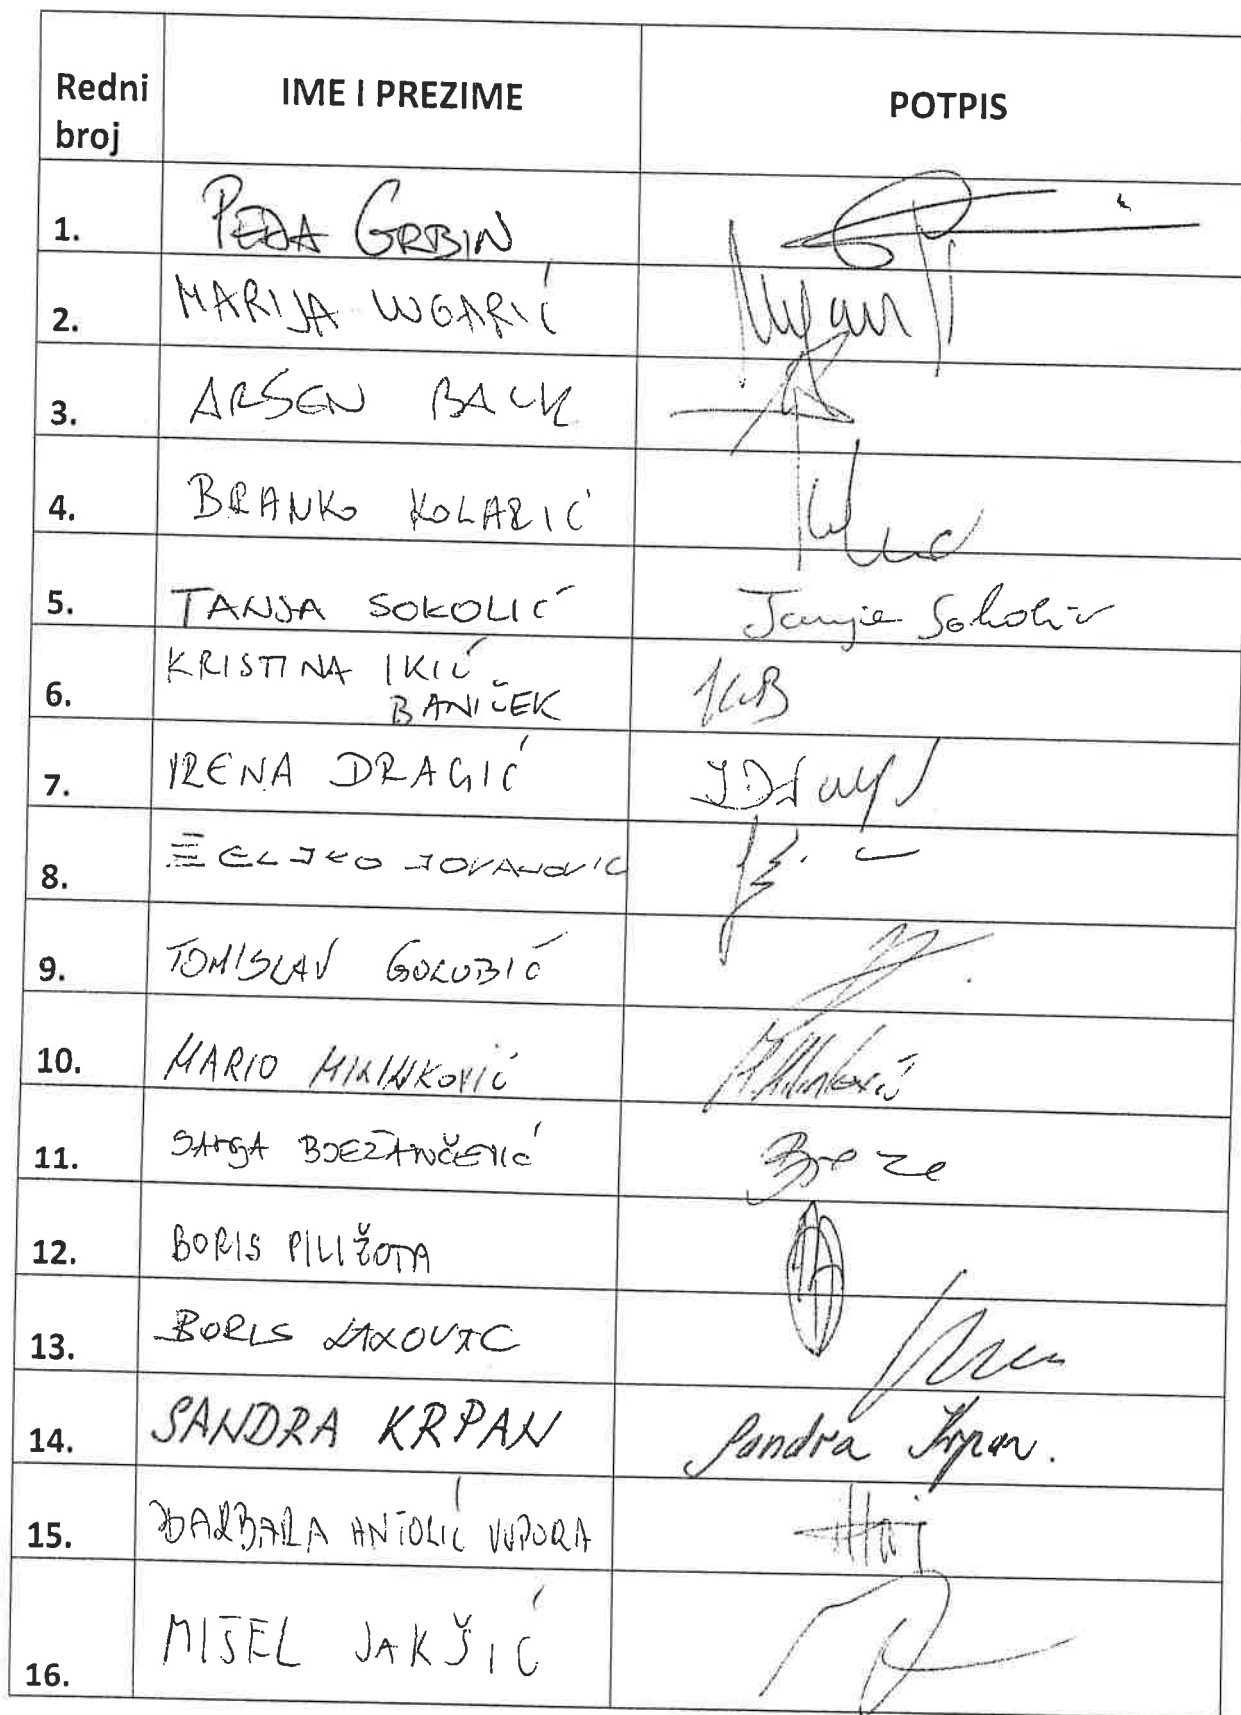 Redni broj IME I PREZIME POTPIS
1. PEĐA GRBIN
2. MARIJA LUGARIĆ
3. ARSEN BAUK
4. BRANKO KOLARIĆ
5. TANJA SOKOLIĆ Tanja Sokolić
6. KRISTINA IKIĆ
BANIČEK IKB
7. IRENA DRAGIĆ
8. ŽELJKO JOVANOVIĆ
9. TOMISLAV GOLUBIĆ
10. MARIO MILINKOVIĆ MMilinković
11. SANJA BJEŽANČEVIĆ
12. BORIS PILIŽOTA
13. BORIS LALOVAC
14. SANDRA KRPAN Sandra Krpan.
15. BARBARA ANTOLIĆ VUPORA
16. MIŠEL JAKŠIĆ